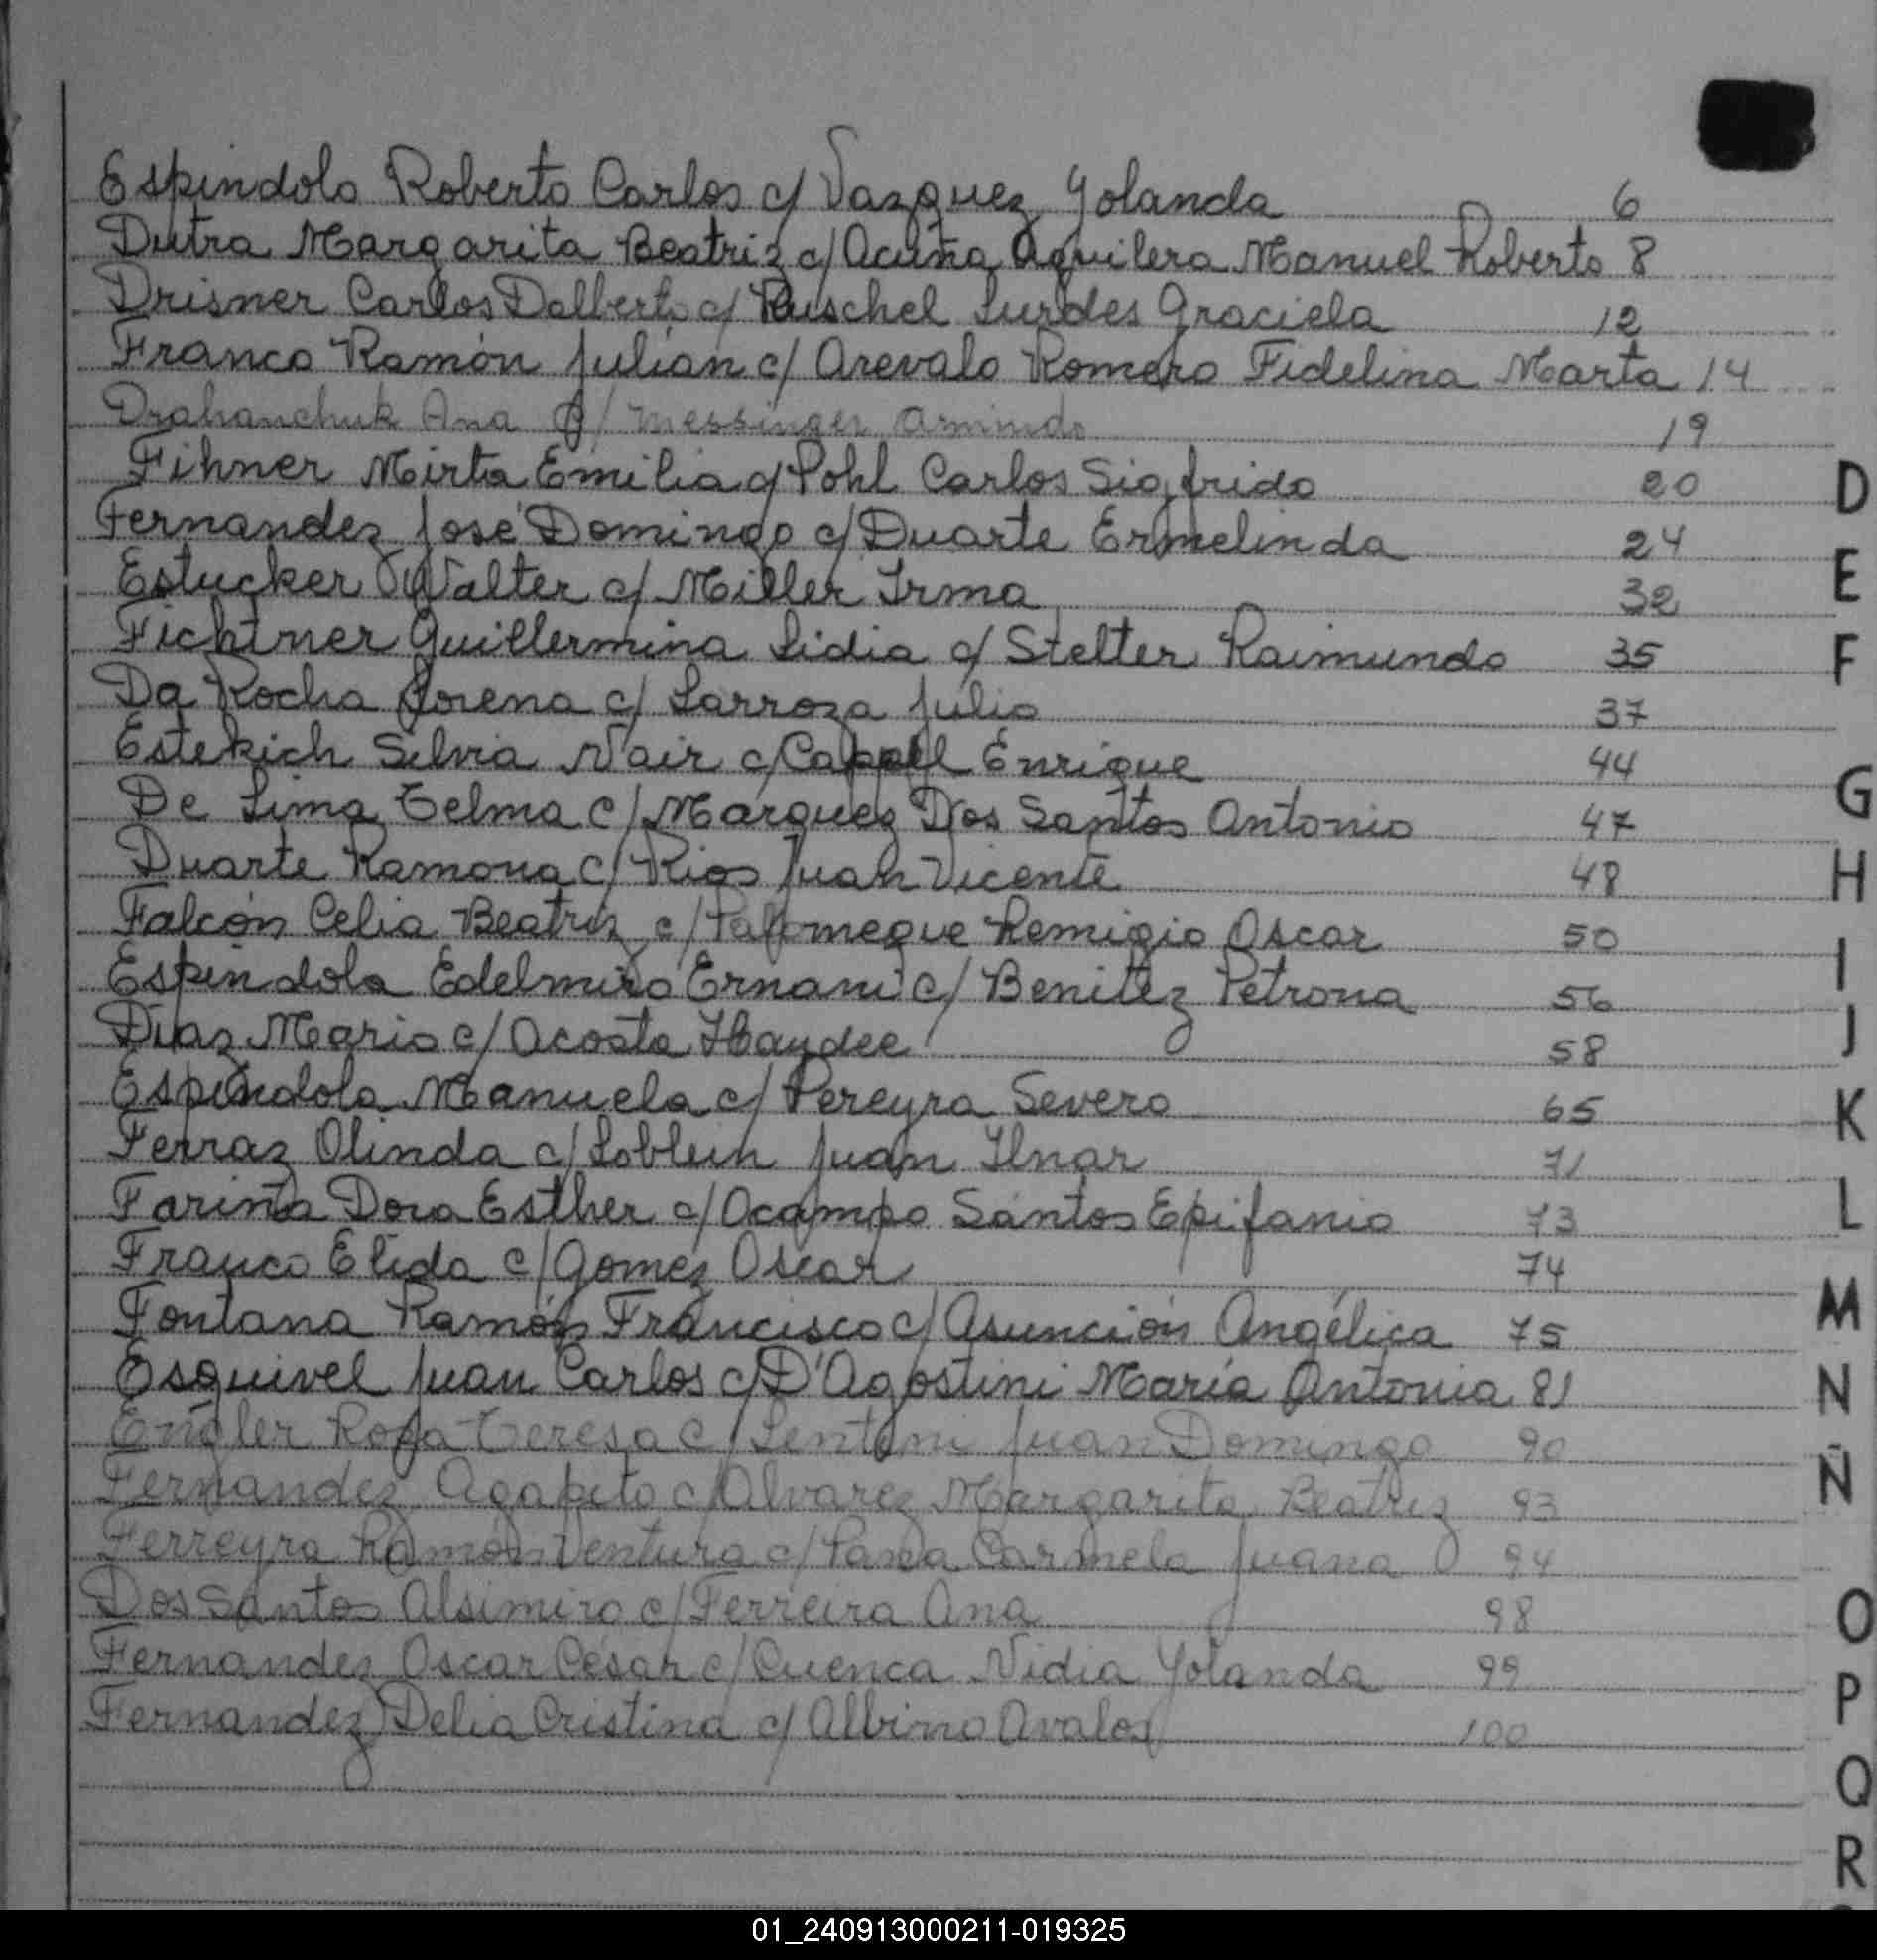 Espindola Roberto Carlos c/ Vazquez Yolanda 6
Dutra Margarita Beatriz c/ Acuña Aguilera Manuel Roberto 8
Drisner Carlos Dalberto c/ Ruschel Lurdes Graciela 12
Franco Ramón Julian c/ Arevalo Romero Fidelina Marta 14
Drahanchuk Ana c/ Messinger Armindo 19
Fihner Mirta Emilia c/ Pohl Carlos Sigfrido 20
Fernandez José Domingo c/ Duarte Ermelinda 24
Estucker Walter c/ Miller Irma 32
Fichtner Guillermina Lidia c/ Stelter Raimundo 35
Da Rocha Lorena c/ Larroza Julio 37
Estekich Silvia Nair c/ Enrique 44
De Lima Telma c/ Márquez Dos Santos Antonio 47
Duarte Ramona c/ Rios Juan Vicente 48
Falcón Celia Beatriz c/ Palomeque Remigio Oscar 50
Espíndola Edelmiro Ernani c/ Benitez Petrona 56
Díaz Mario c/ Acosta Haydee 58
Espíndola Manuela c/ Pereyra Severo 65
Ferraz Olinda c/ Loblein Juan Ilnar 71
Fariña Dora Esther c/ Ocampo Santos Epifanio 73
Franco Elida c/ Gomez Oscar 74
Fontana Ramón Francisco c/ Asunción Angélica 75
Esquivel Juan Carlos c/ D'Agostini María Antonia 81
Engler Rosa Teresa c/ Juan Domingo 90
Fernandez Agapito c/ Alvarez Margarita Beatriz 93
Ferreyra Ramón Ventura c/ Carmela Juana 94
Dos Santos Alsimiro c/ Ferreira Ana 98
Fernandez Oscar César c/ Cuenca Nidia Yolanda 99
Fernandez Delia Cristina c/ Albino Avalos 100
D
E
F
G
H
I
J
K
L
M
N
Ñ
O
P
Q
R
01_240913000211-019325